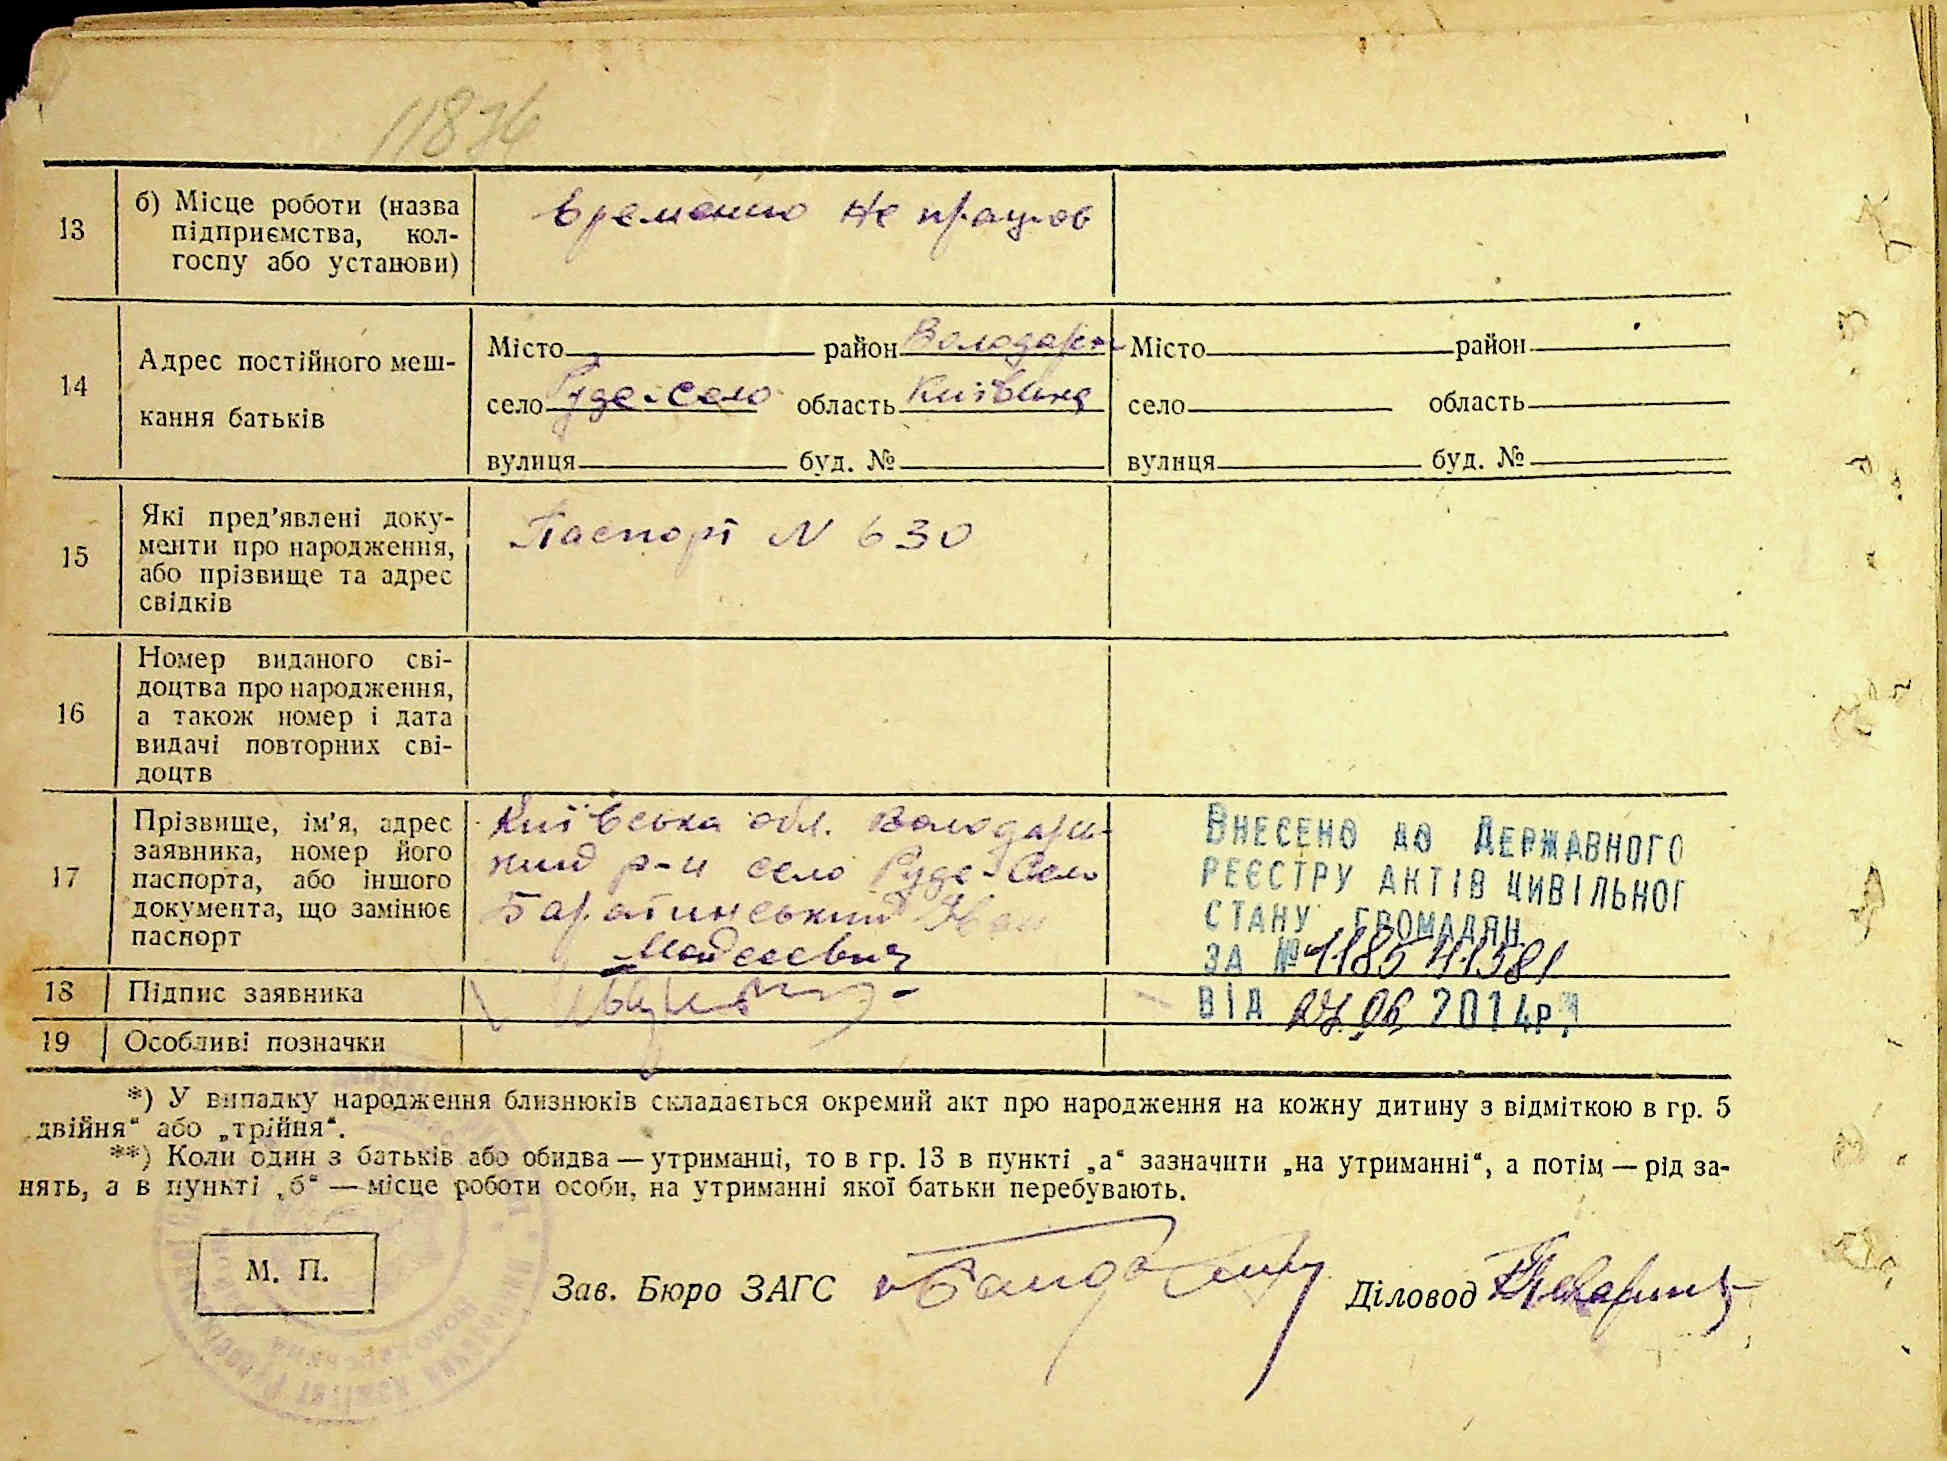 11876
13
б) Місце роботи (назва
підприємства, кол-
госпу або установи)
временно не працюв
14
Адрес постійного меш-
кання батьків
Місто район Володарк Місто район
село Руде-село область Київська село область
вулиця буд. № вулиця буд. №
15
Які пред'явлені доку-
менти про народження,
або прізвище та адрес
свідків
Паспорт N 630
16
Номер виданого сві-
доцтва про народження,
а також номер і дата
видачі повторних сві-
доцтв
17
Прізвище, ім'я, адрес
заявника, номер його
паспорта, або іншого
документа, що замінює
паспорт
Київська обл. Володарс-
кий р-н село Руде-Село
Баратинський Іван
Мойсеевич
ВНЕСЕНО ДО ДЕРЖАВНОГО
РЕЄСТРУ АКТІВ ЦИВІЛЬНОГ
СТАНУ ГРОМАДЯН
ЗА № 1185 41381
ВІД 07.06 2014р.
18 Підпис заявника
19 Особливі позначки
*) У випадку народження близнюків складається окремий акт про народження на кожну дитину з відміткою в гр. 5
„двійня“ або „трійня“.
**) Коли один з батьків або обидва — утриманці, то в гр. 13 в пункті „а“ зазначити „на утриманні“, а потім — рід за-
нять, а в пункті „б“ — місце роботи особи, на утриманні якої батьки перебувають.
М. П.
Зав. Бюро ЗАГС Діловод